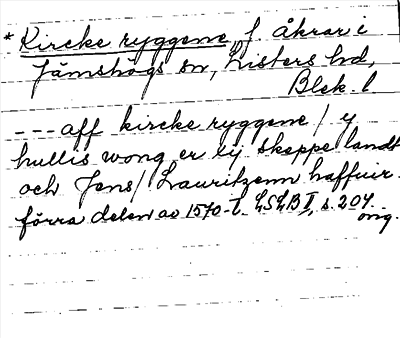 * Kircke ryggene, f. åkrar i
Jämshögs sn, Listers hd,
Blek. l
--- aff kircke ryggene / y
hullis wong er iij skeppe landt
och Jens / Lauritzenn haffuir.
förra delen av 1570-t. LSLB II, s. 204
orig.